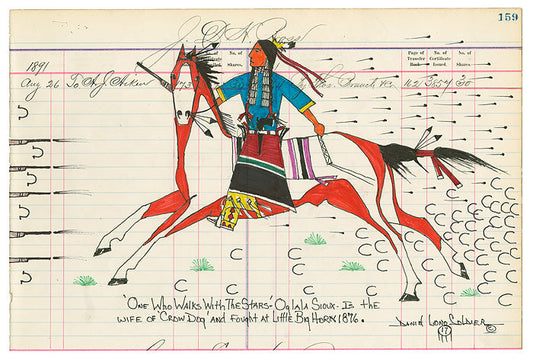 159
J. G. H. Ross
No. of Shares.
No. of Shares.
Page of Transfer Book
No. of Certificate Issued.
No. of Shares.
1891
Aug 26 To A. J. Aiken 73 162 3654 20
"One Who Walks With The Stars" Oglala Sioux - Is the
wife of "Crow Dog" and fought at Little Big Horn 1876.
Daniel Long Soldier ©